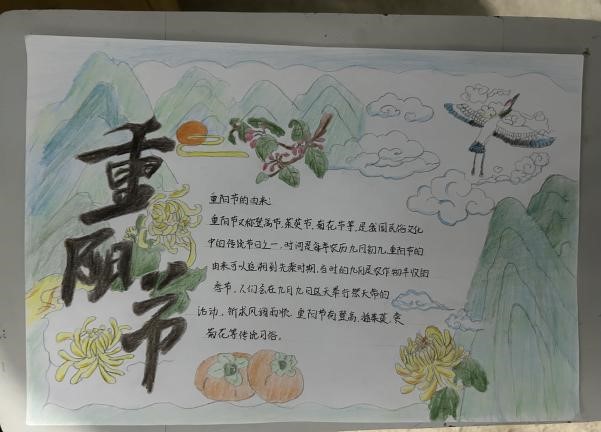 重阳节
重阳节的由来:
重阳节又称登高节、茱萸节、菊花节等,是我国民俗文化
中的传统节日之一,时间是每年农历九月初九,重阳节的
由来可以追溯到先秦时期,当时的九月是农作物丰收的
季节,人们会在九月九日这天举行祭天帝的
活动,祈求风调雨顺,重阳节有登高、插茱萸、赏
菊花等传统习俗。